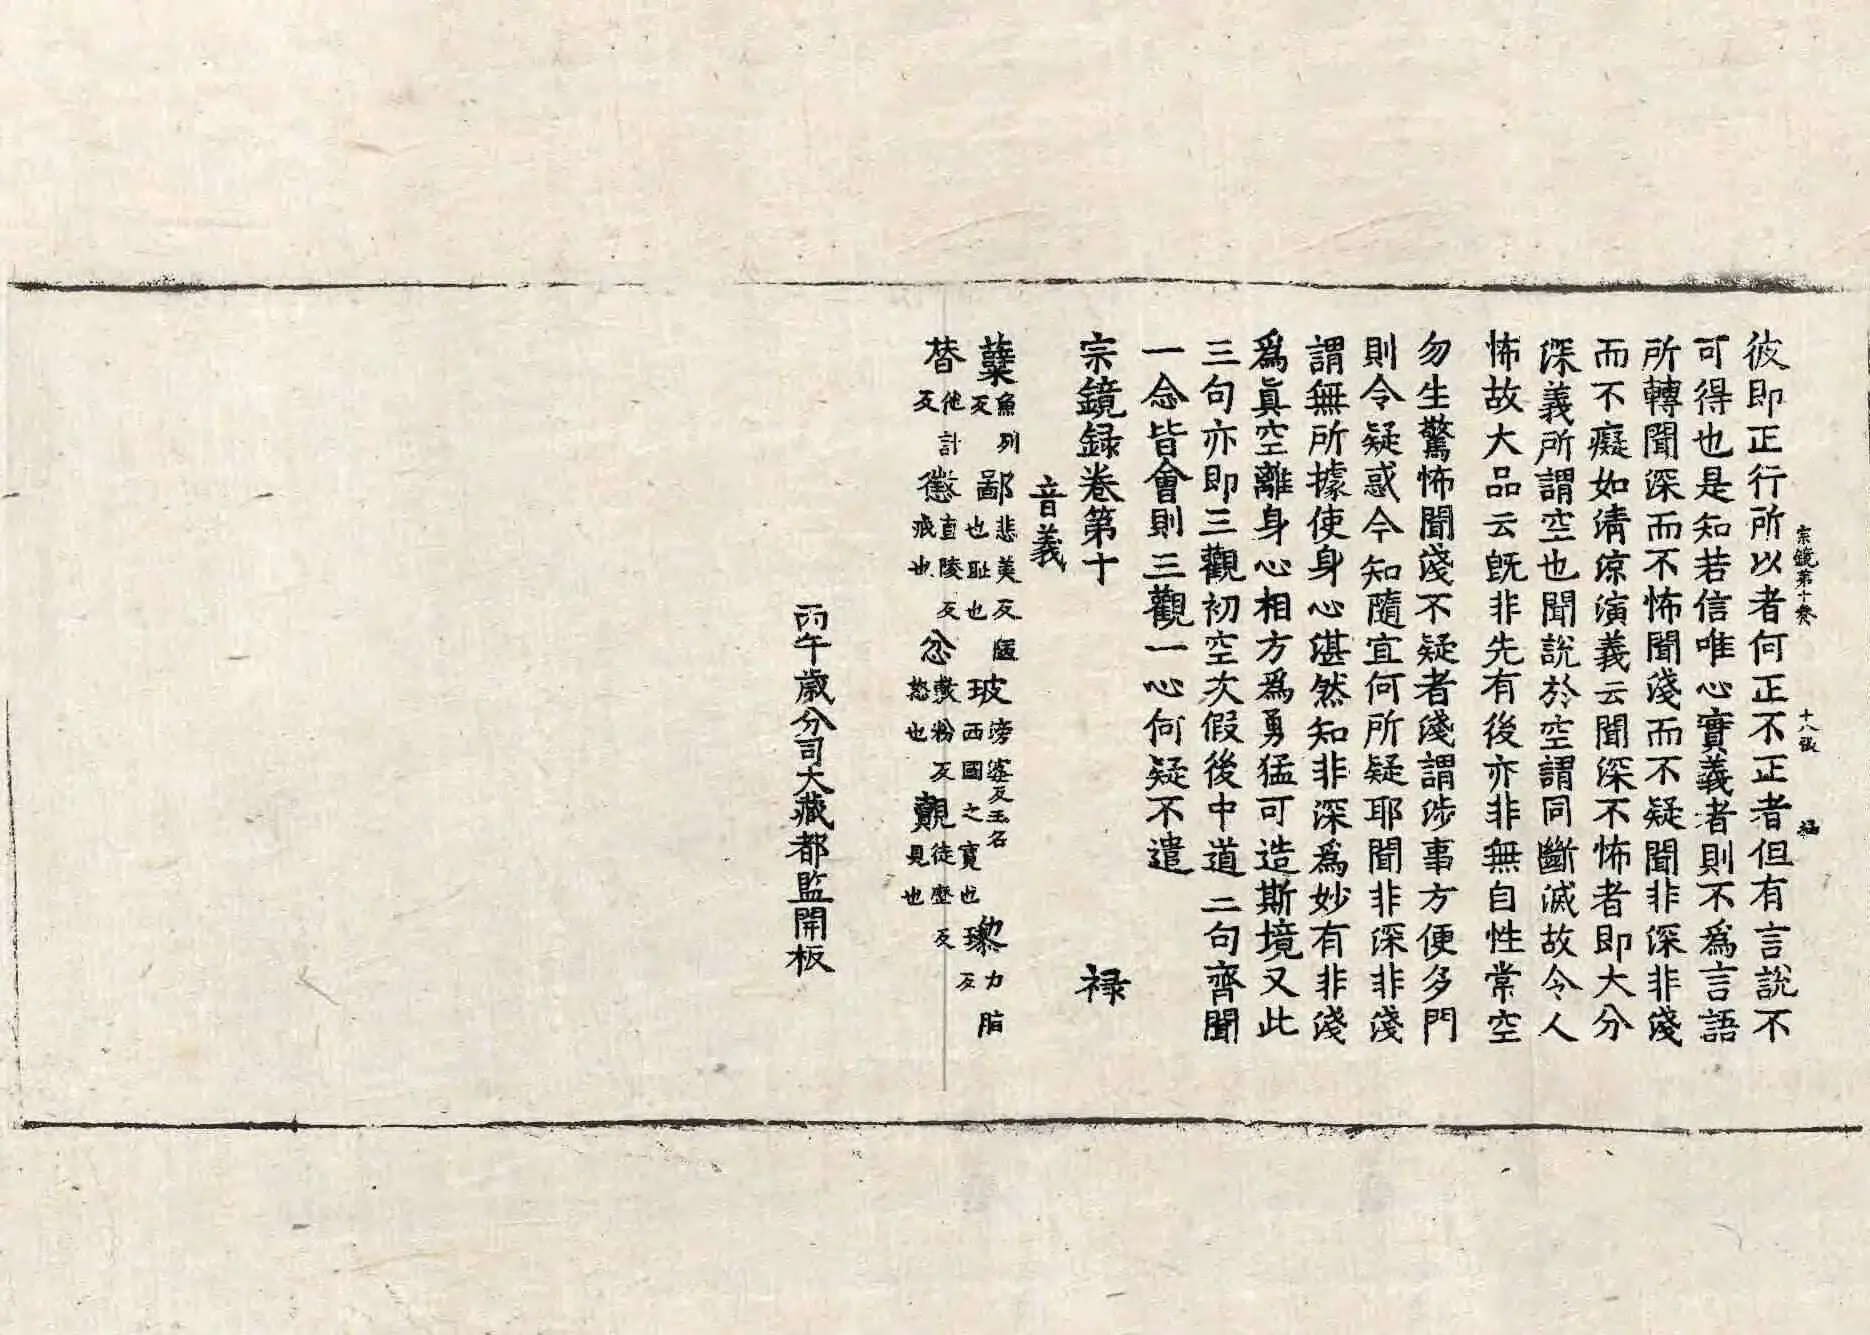 宗鏡第十卷 十八張
彼即正行所以者何正不正者但有言說不
可得也是知若信唯心實義者則不爲言語
所轉聞深而不怖聞淺而不疑聞非深非淺
而不癡如清涼演義云聞深不怖者即大分
深義所謂空也聞說於空謂同斷滅故令人
怖故大品云旣非先有後亦非無自性常空
勿生驚怖聞淺不疑者淺謂涉事方便多門
則令疑惑今知隨宜何所疑耶聞非深非淺
謂無所據使身心湛然知非深爲妙有非淺
爲眞空離身心相方爲勇猛可造斯境又此
三句亦即三觀初空次假後中道二句齊聞
一念皆會則三觀一心何疑不遣
宗鏡録卷第十 禄
音義
蘖魚列反 鄙悲美反陋也耻也 玻滂婆反玉名西國之寶也 瓈力脂反
朁他計反 懲直陵反戒也 忿敷粉反怒也 覿徒歷反見也
丙午歲分司大藏都監開板